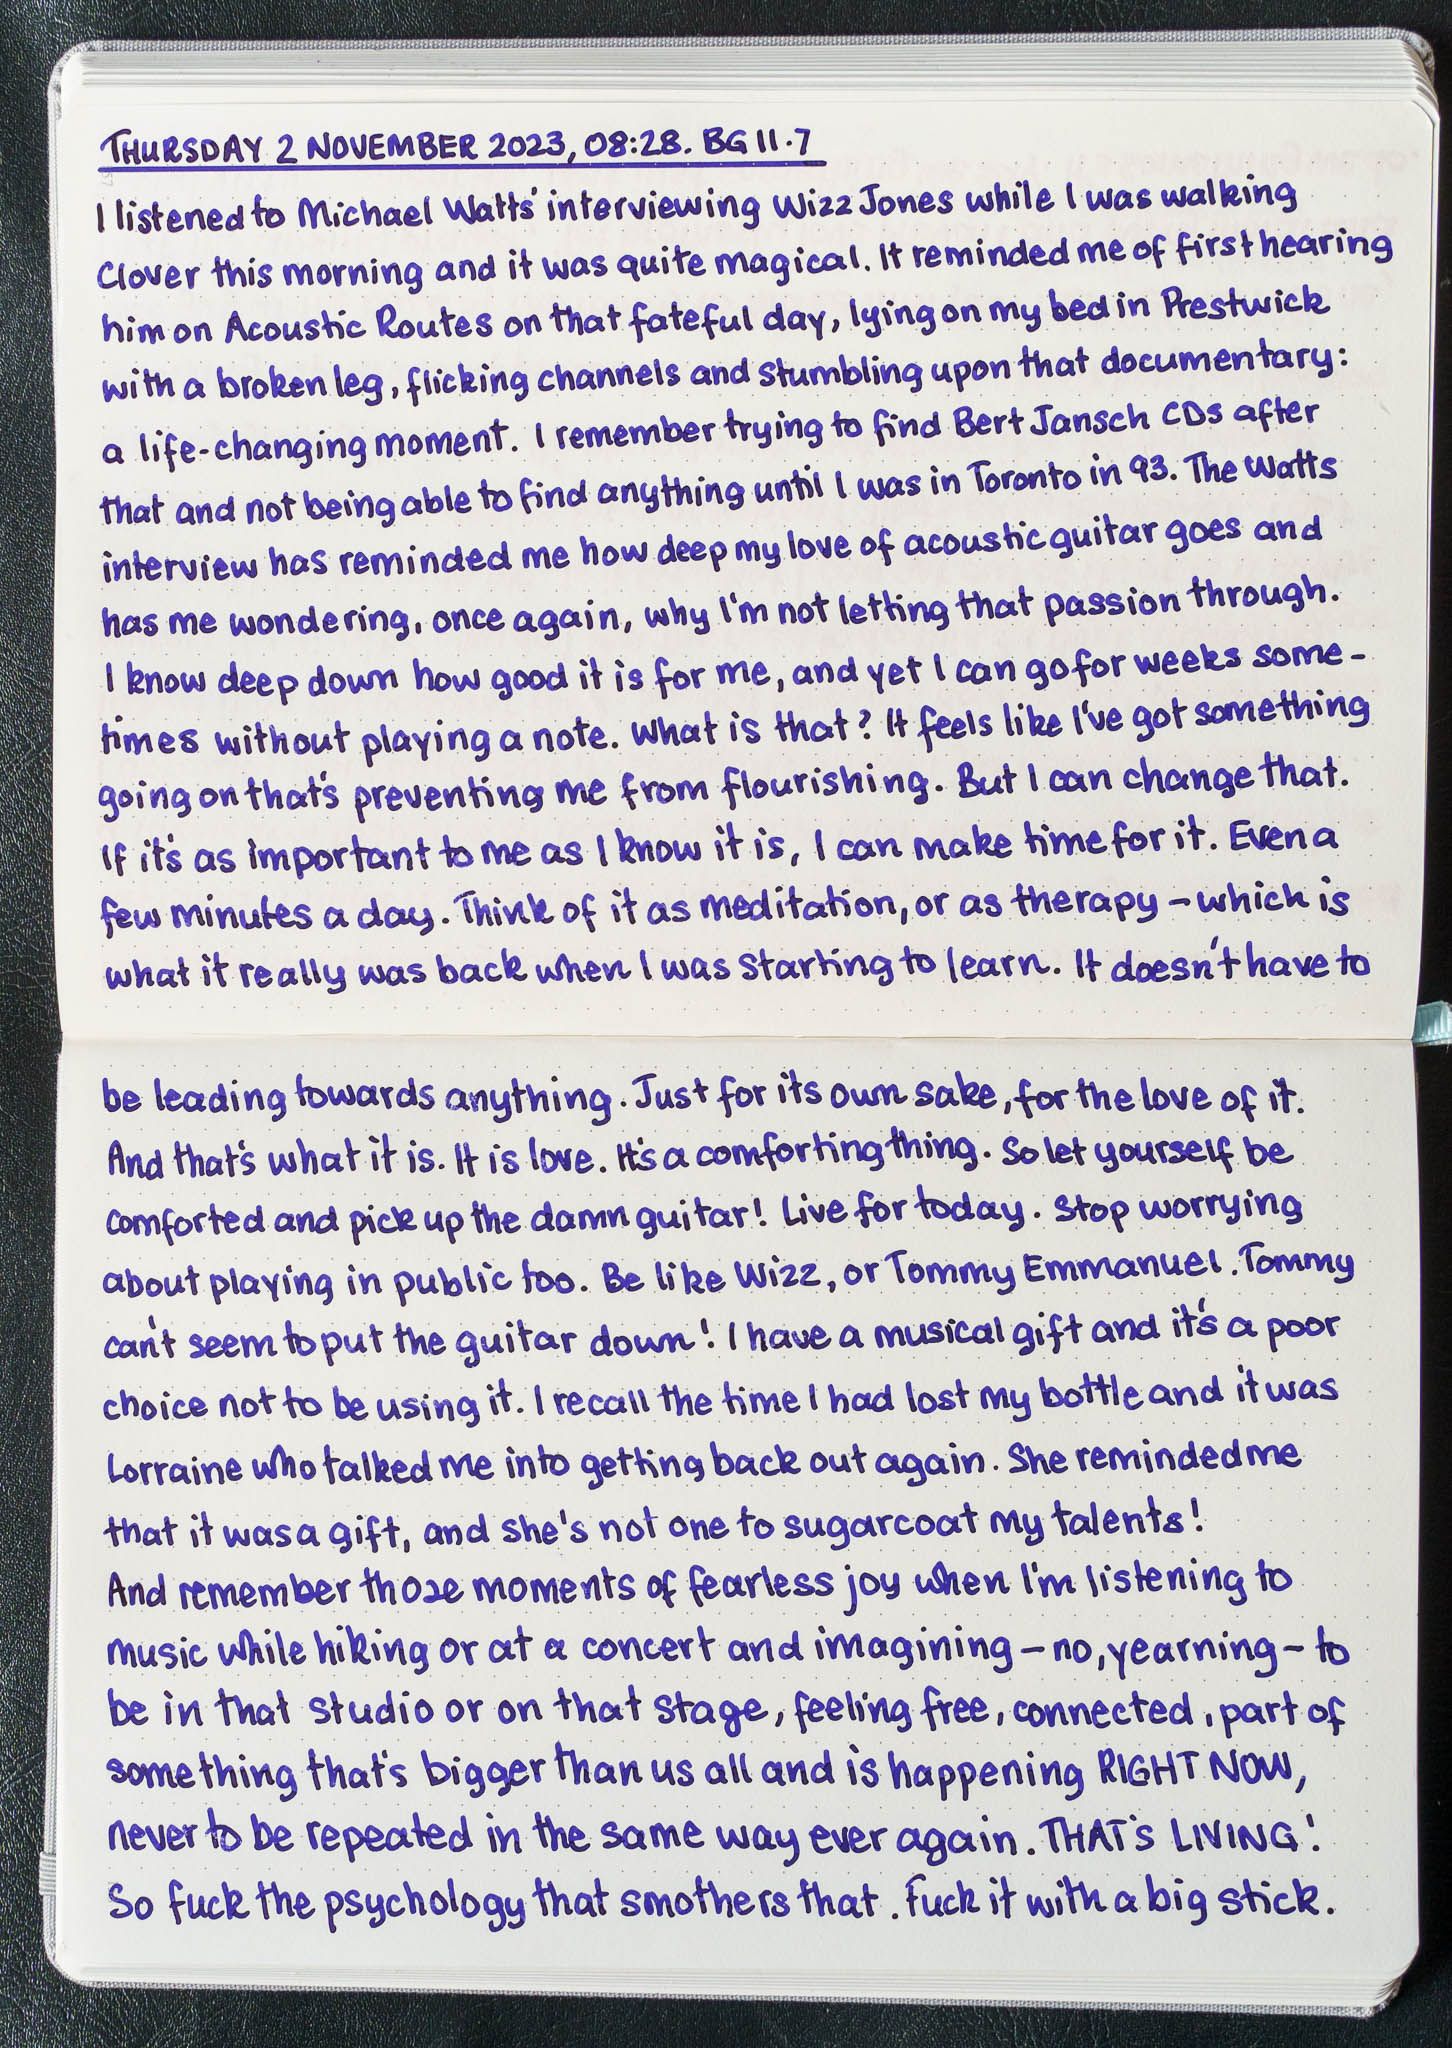 THURSDAY 2 NOVEMBER 2023, 08:28. BG 11.7
I listened to Michael Watts' interviewing Wizz Jones while I was walking
Clover this morning and it was quite magical. It reminded me of first hearing
him on Acoustic Routes on that fateful day, lying on my bed in Prestwick
with a broken leg, flicking channels and stumbling upon that documentary:
a life-changing moment. I remember trying to find Bert Jansch CDs after
that and not being able to find anything until I was in Toronto in 93. The Watts
interview has reminded me how deep my love of acoustic guitar goes and
has me wondering, once again, why I'm not letting that passion through.
I know deep down how good it is for me, and yet I can go for weeks some-
times without playing a note. What is that? It feels like I've got something
going on that's preventing me from flourishing. But I can change that.
If it's as important to me as I know it is, I can make time for it. Even a
few minutes a day. Think of it as meditation, or as therapy – which is
what it really was back when I was starting to learn. It doesn't have to
be leading towards anything. Just for its own sake, for the love of it.
And that's what it is. It is love. It's a comforting thing. So let yourself be
comforted and pick up the damn guitar! Live for today. Stop worrying
about playing in public too. Be like Wizz, or Tommy Emmanuel. Tommy
can't seem to put the guitar down! I have a musical gift and it's a poor
choice not to be using it. I recall the time I had lost my bottle and it was
Lorraine who talked me into getting back out again. She reminded me
that it was a gift, and she's not one to sugarcoat my talents!
And remember those moments of fearless joy when I'm listening to
music while hiking or at a concert and imagining – no, yearning – to
be in that studio or on that stage, feeling free, connected, part of
something that's bigger than us all and is happening RIGHT NOW,
never to be repeated in the same way ever again. THAT'S LIVING!
So fuck the psychology that smothers that. Fuck it with a big stick.